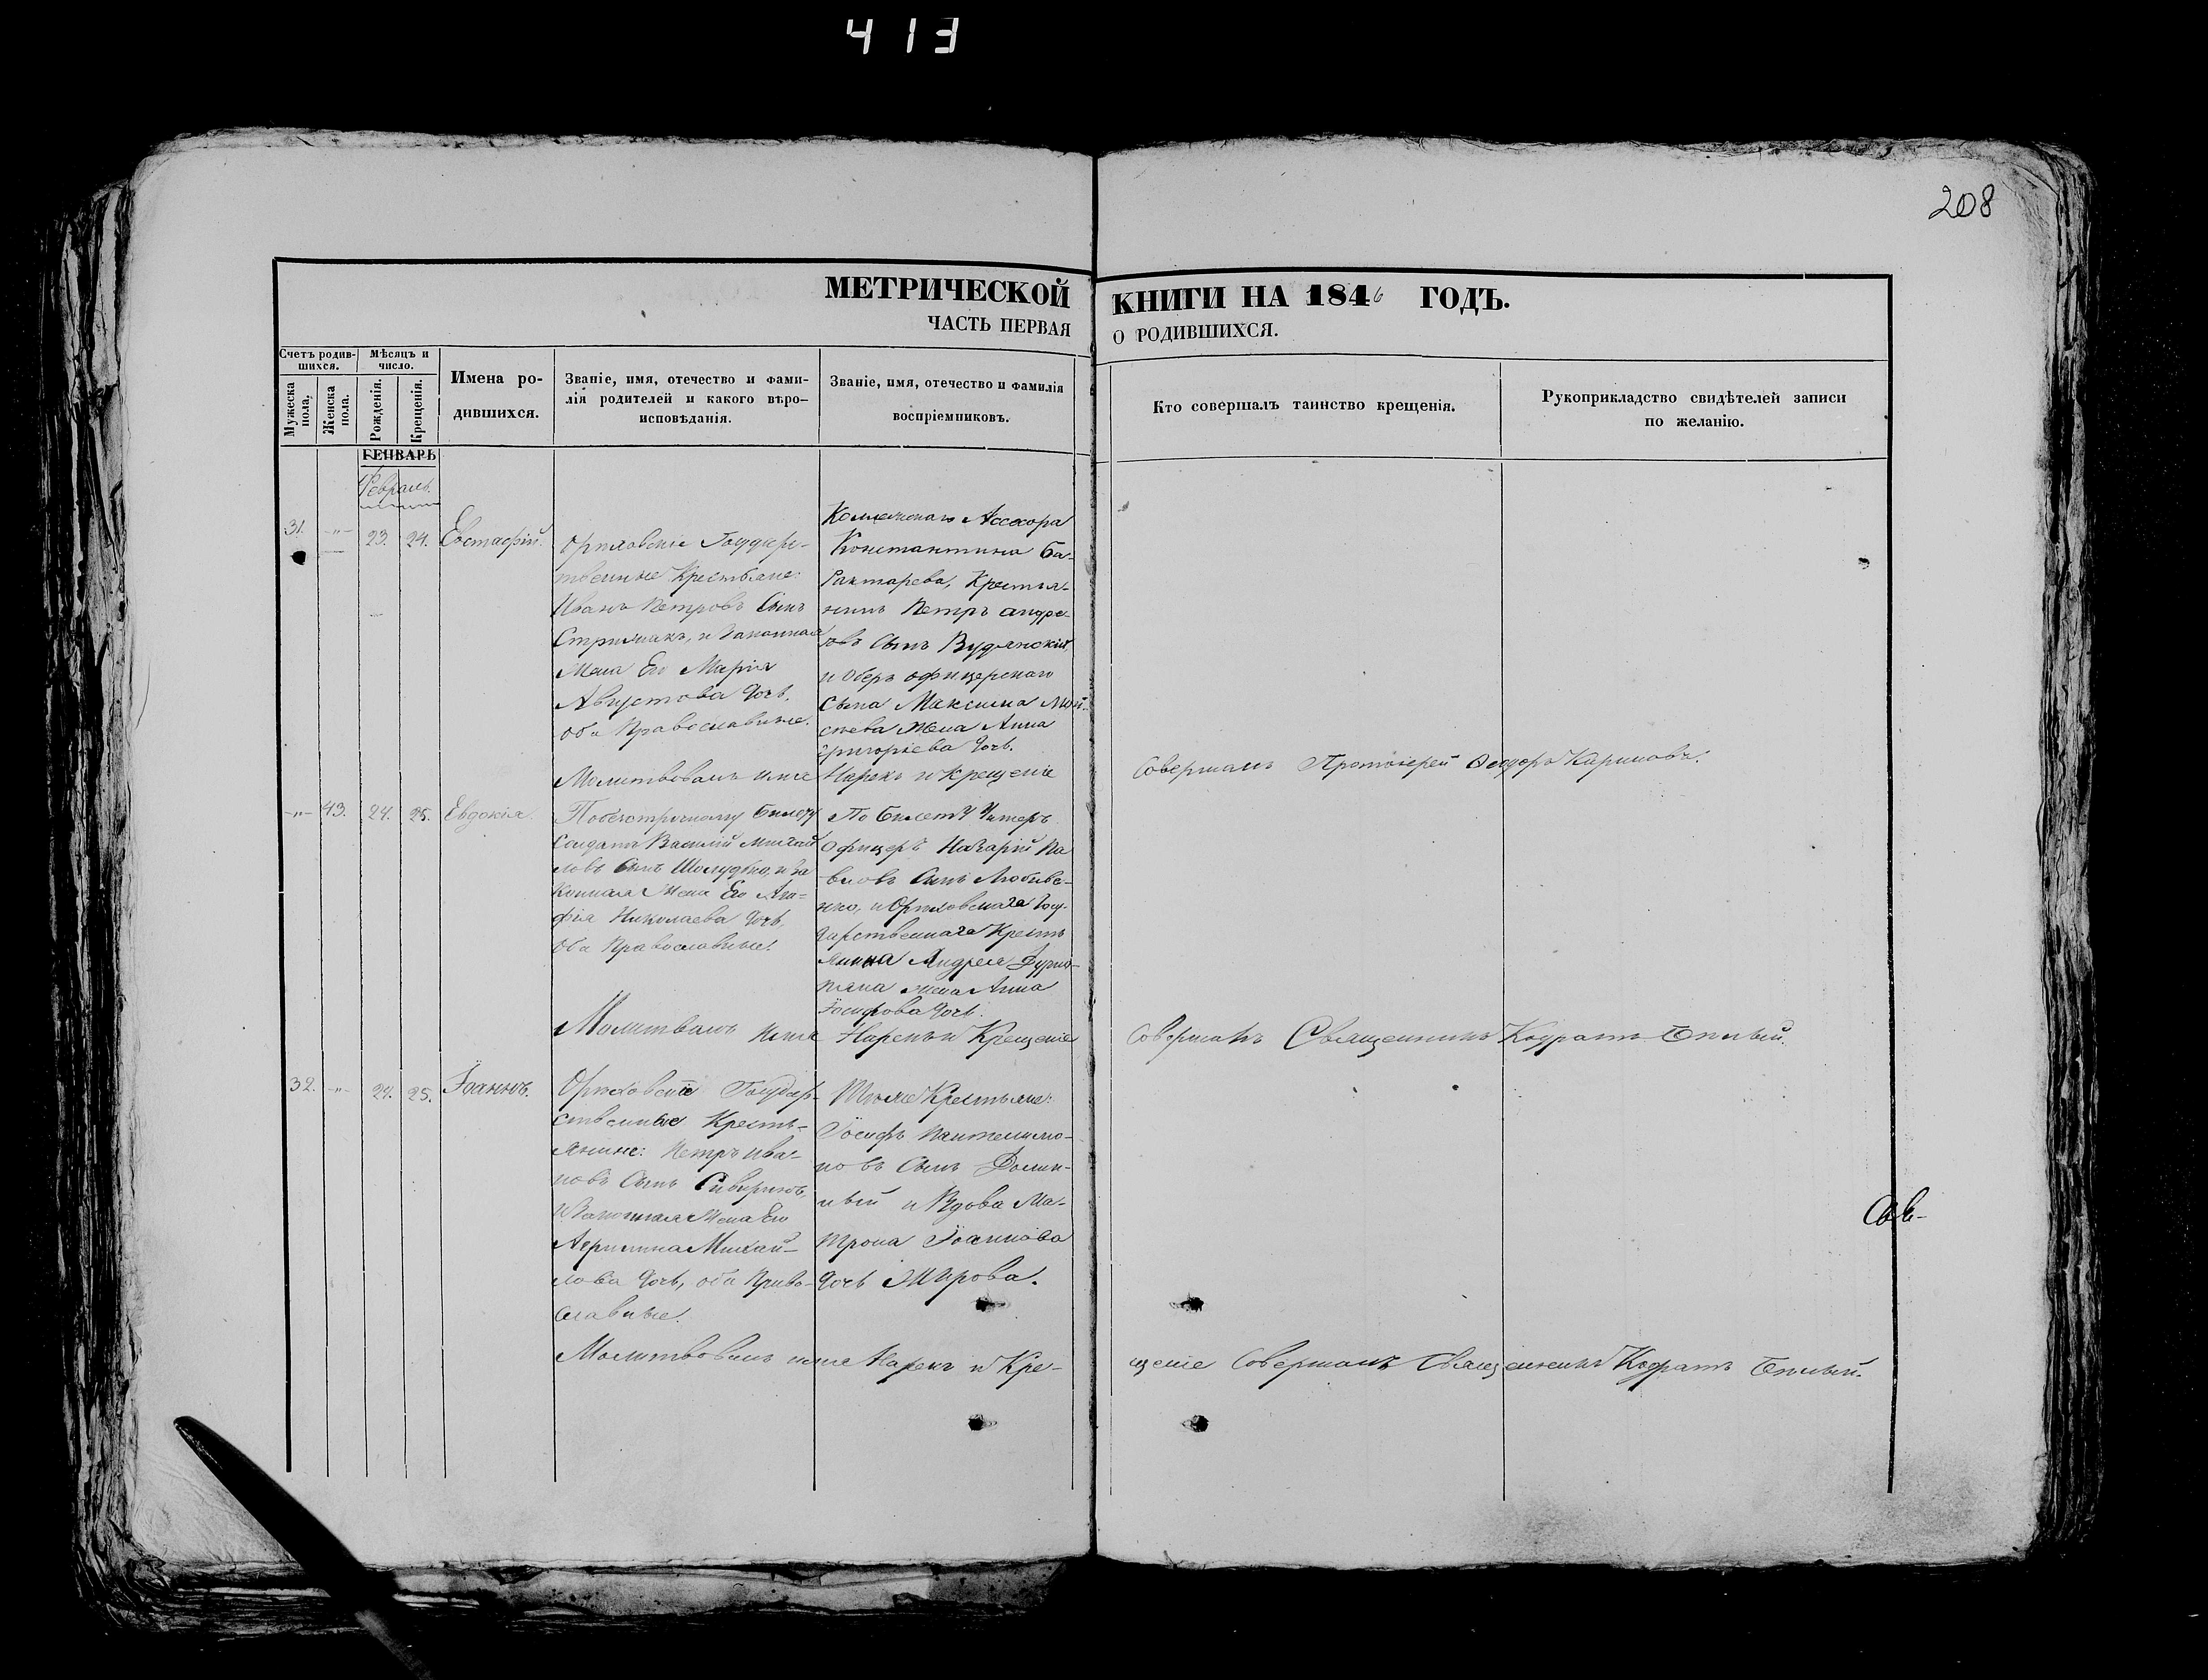 413
208
МЕТРИЧЕСКОЙ КНИГИ НА 1846 ГОДЪ.
ЧАСТЬ ПЕРВАЯ О РОДИВШИХСЯ.
Счетъ родившихся.
Мѣсяцъ и число.
Мужеска пола.
Женска пола.
Рожденія.
Крещенія.
Имена родившихся.
Званіе, имя, отечество и фамилія родителей и какого вѣроисповѣданія.
Званіе, имя, отечество и фамилія воспріемниковъ.
Кто совершалъ таинство крещенія.
Рукоприкладство свидѣтелей записи по желанію.
ГЕНВАРЬ
Февраль.
31. -"- 23. 24. Евстафій.
Орѣховскіе Государ-
твенные Крестьяне:
Иванъ Петровъ Сынъ
и Законная
Жена Его Марія
Августова дочь,
оба Православные.
Коллежскаго Ассесора
Константина Ба-
Рактарева, Крестья-
нинъ Петръ Андре-
овъ Сынъ Вудянскій,
и Оберъ офицерскаго
Сына Максима
жена Анна
Григоріева дочь.
Молитвовалъ имя Нарекъ и крещеніе
Совершалъ Протоіерей Ѳеодоръ Кариповъ.
-"- 43. 24. 25. Евдокія.
Билету
Солдатъ Василій Михай
ловъ Сынъ Шолудько, и за
конная Жена Его Ага-
фія Николаева дочь,
Оба Православные.
По Билету Унтеръ
Офицеръ Назарій Па
вловъ Сынъ
нко, и Орѣховскаго Госу-
дарственнаго Кресть
янина Андрея
жена Анна
Іосифова дочь.
Молитвалъ имя Нарекъ и Крещеніе
Совершалъ Священникъ Кодратъ Бѣлый.
32. -"- 24. 25. Іоаннъ.
Орѣховскіе Государ-
ственные Кресть-
янине: Петръ Ива-
новъ Сынъ
и Законная Жена Его
Акрилина Михай-
лова дочь, оба Право-
славные.
Тѣже Крестьяне:
Іосифъ Пантелимо-
новъ Сынъ Долин-
ный и Вдова Ма-
трона Іоаннова
дочь Жирова.
Молитвовалъ имя Нарекъ и Кре-
щеніе Совершалъ Священникъ Кодратъ Бѣлый.